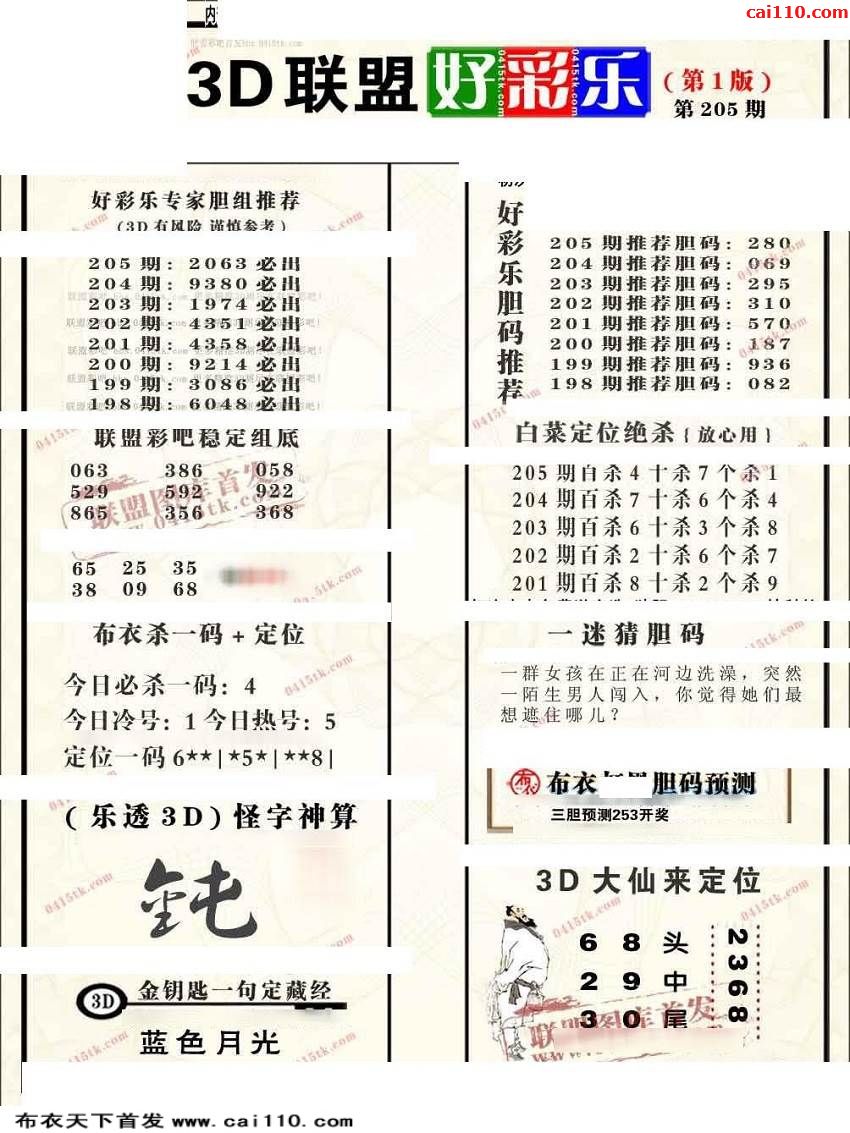 cai110.com
3D联盟好彩乐
(第1版)
第205期
好彩乐专家胆组推荐
(3D有风险 谨慎参考)
205期: 2063必出
204期: 9380必出
203期: 1974必出
202期: 4351必出
201期: 4358必出
200期: 9214必出
199期: 3086必出
198期: 6048必出
联盟彩吧稳定组底
063 386 058
529 592 922
865 356 368
65 25 35
38 09 68
布衣杀一码+定位
今日必杀一码: 4
今日冷号: 1 今日热号: 5
定位一码 6**|*5*|**8|
(乐透3D)怪字神算
3D 金钥匙一句定藏经
蓝色月光
好彩乐胆码推荐
205期推荐胆码: 280
204期推荐胆码: 069
203期推荐胆码: 295
202期推荐胆码: 310
201期推荐胆码: 570
200期推荐胆码: 187
199期推荐胆码: 936
198期推荐胆码: 082
白菜定位绝杀{放心用}
205期百杀4十杀7个杀1
204期百杀7十杀6个杀4
203期百杀6十杀3个杀8
202期百杀2十杀6个杀7
201期百杀8十杀2个杀9
一迷猜胆码
一群女孩在正在河边洗澡，突然
一陌生男人闯入，你觉得她们最
想遮住哪儿？
布衣 胆码预测
三胆预测253开奖
3D大仙来定位
6 8 头
2 9 中
3 0 尾
2368
布衣天下首发 www.cai110.com